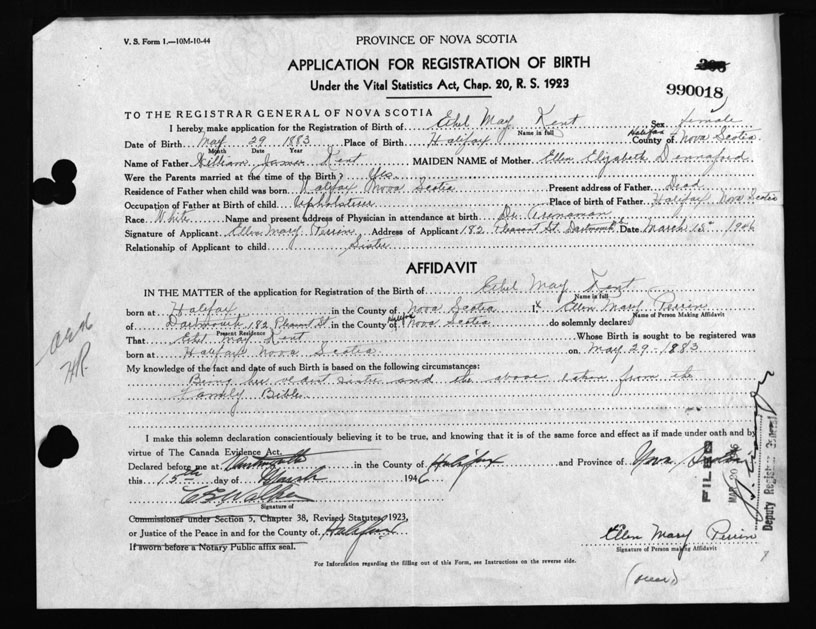 V. S. Form 1.—10M-10-44
PROVINCE OF NOVA SCOTIA
APPLICATION FOR REGISTRATION OF BIRTH
Under the Vital Statistics Act, Chap. 20, R. S. 1923
990018
TO THE REGISTRAR GENERAL OF NOVA SCOTIA
I hereby make application for the Registration of Birth of Ethel May Kent Sex female
Name in full
Date of Birth May 29 1883 Place of Birth Halifax County of Halifax Nova Scotia
Month Date Year
Name of Father William James Kent MAIDEN NAME of Mother Ellen Elizabeth
Were the Parents married at the time of Birth? Yes
Residence of Father when child was born Halifax Nova Scotia Present address of Father Dead
Occupation of Father at Birth of child Upholsterer Place of birth of Father Halifax, Nova Scotia
Race White Name and present address of Physician in attendance at birth Dr.
Signature of Applicant Ellen Mary Perrin Address of Applicant 182 Pleasant St. Dartmouth Date March 15 1946
Relationship of Applicant to child Sister
AFFIDAVIT
IN THE MATTER of the application for Registration of the Birth of Ethel May Kent
Name in full
born at Halifax in the County of Nova Scotia I, Ellen Mary Perrin
Name of Person Making Affidavit
of Dartmouth 182 Pleasant St. in the County of Halifax Nova Scotia do solemnly declare:
Present Residence
That Ethel May Kent Whose Birth is sought to be registered was
born at Halifax Nova Scotia on May 29 - 1883
My knowledge of the fact and date of such Birth is based on the following circumstances:
Being her eldest sister and the above taken from the
Family Bible.
I make this solemn declaration conscientiously believing it to be true, and knowing that it is of the same force and effect as if made under oath and by
virtue of The Canada Evidence Act.
Declared before me at Dartmouth in the County of Halifax and Province of Nova Scotia
this 15th day of March 1946
Signature of
Commissioner under Section 5, Chapter 38, Revised Statutes, 1923,
or Justice of the Peace in and for the County of Halifax
If sworn before a Notary Public affix seal.
Ellen Mary Perrin
Signature of Person making Affidavit
For Information regarding the filling out of this Form, see Instructions on the reverse side.
(over)
FILED
MAR 20 1946
Deputy Registrar General